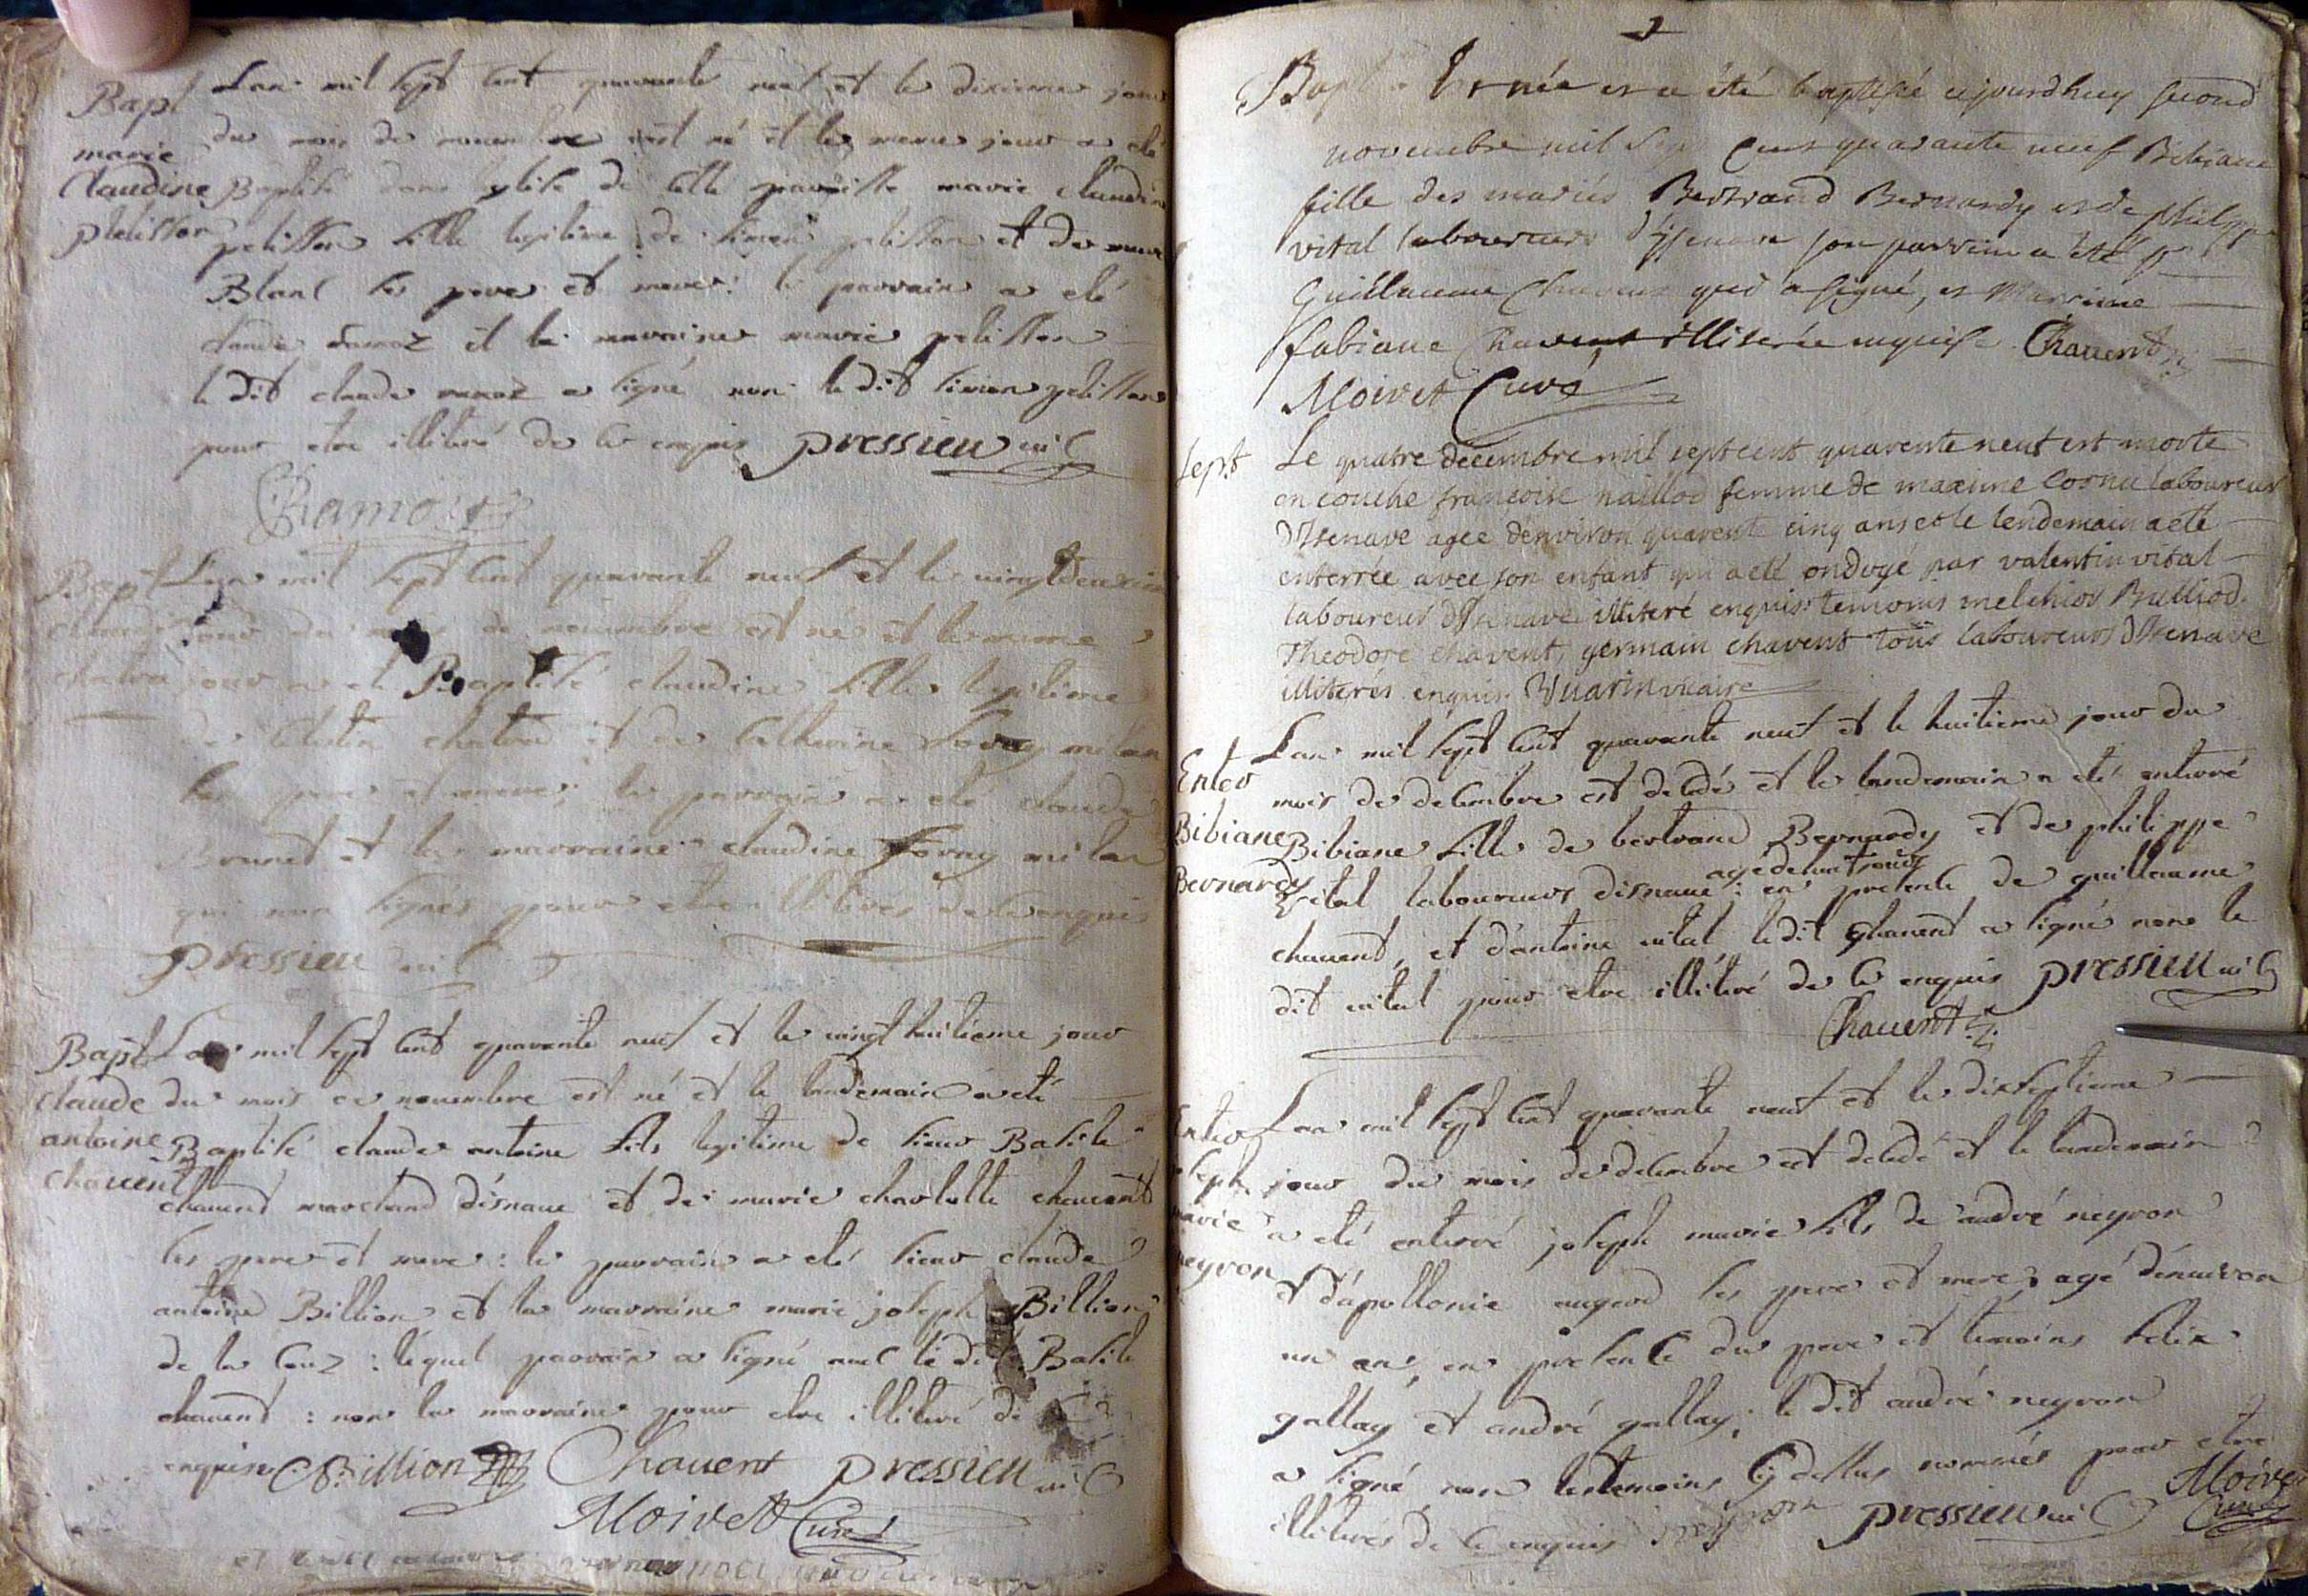 Bapt
marie
Claudine
pelisson
Lan mil sept cent quarante neuf et le dixieme jour
du mois de novembre est né et le meme jour a eté
Baptisé dans leglise de cette paroisse marie claudine
pelisson fille legitime de simon pelisson et de marie
Blanc ses pere et mere: le parrain a eté
claude ramoz et la marraine marie pelisson
le dit claude ramoz a signé non le dit simon pelisson
pour etre illiteré de ce enquis pressieu vic
Bapt
claudine
chatra
Lan mil sept cent quarante neuf et le vingtdeuxieme
jour du mois de nouembre est né et le meme
jour a eté Baptisé claudine fille legitime
de chatra et de Catherine
ses pere et mere; le parrain a eté claude
Brunet et la marraine claudine
qui non signés pour etre illiteres de ce enquis
pressieu vic
Bapt
claude
antoine
chauent
Lan mil sept cent quarante neuf et le vingt huitieme jour
du mois de nouembre est né et le landemain a eté
Baptisé claude antoine fils legitime de sieur Basile
chauent marchand disnaue et de marie charlotte chauent
ses pere et mere: le parrain a eté sieur claude
antoine Billion et la marraine marie joseph Billion
de la : lequel parrain a signé auec le dit Basile
chauent: non la marraine pour etre illiteré de
enquise C Billion Chauent pressieu vic
Moivet Curé
Bapt Est née et a été baptisé cejourdhuy second
novembre mil Sept Cens quarante neuf Bibiane
fille des mariés Bertrand Bernardy et de philippe
vital laboureurs d'Jsenave son parrin a été sr
Guillaume Chavent qui a signé, et Marrine
fabiane Chavent illiterée enquise Chauent
Moivet Curé
Sept
Le quatre decembre mil septcent quarente neuf est morte
en couche francoise naillod femme de maxime Cornu laboureur
D'Isenave agee denviron quarent cinq ans et le lendemain a eté
enterrée avec son enfant qui a eté ondoyé par valentin vital
laboureur d'Isenave illiteré enquis: temoins melchior Bulliod
Theodore chavent, germain chavent tous laboureurs D'Isenave
illiterés enquis Vuarin vicaire
Enter
Bibiane
Bernardy
Lan mil sept cent quarante neuf et le huitieme jour du
mois de decembre est decedé et le landemain a eté enterré
Bibiane fille de bertrand Bernardy et de philippe
agé de huit jours
Vital laboureurs disnaue: en presence de guillaume
chauent, et d'antoine vital ledit chauent a signé non le
dit vital pour etre illiteré de ce enquis pressieu vic
Chauent
Enter
joseph
marie
neyron
Lan mil sept cent quarante neuf et le dixseptieme
jour du mois de decembre est decedé et le landemain
a eté enterré joseph marie fils de andré neyron
et d'apollonie ses pere et mere; agé d'enuiron
un an, en presence du pere et temoins felix
gallay et andré gallay; le dit andré neyron
a signé non les temoins cy dessus nommés pour etre
illiterés de ce enquis neyron pressieu vic Moivet
Curé